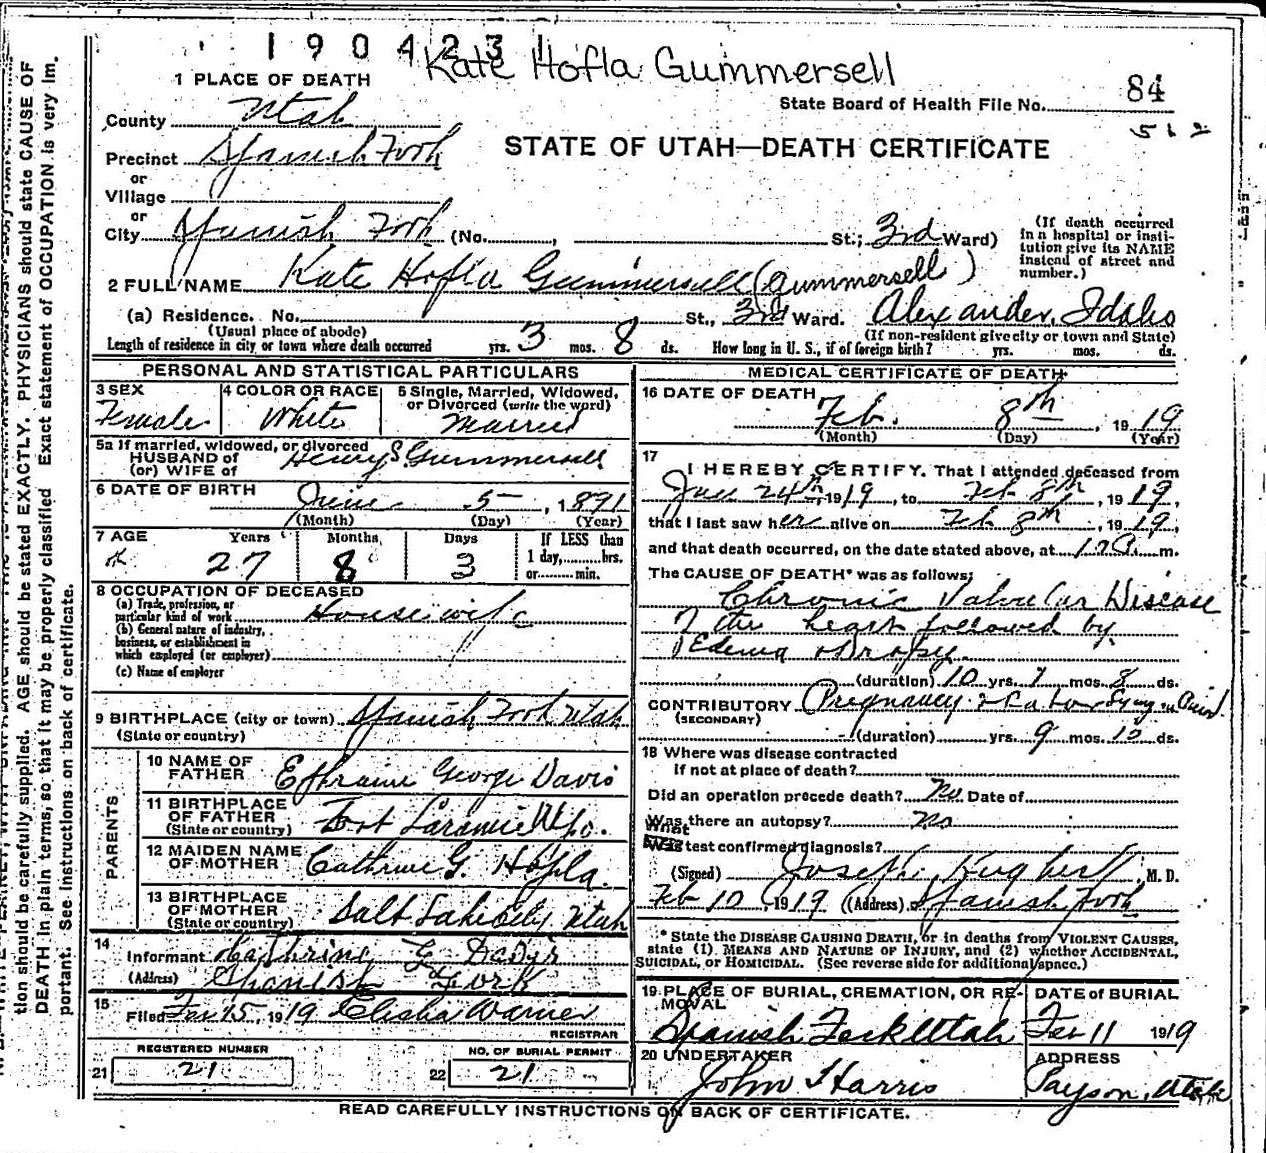 190423
Kate Hofla Gummersell
1 PLACE OF DEATH
84
State Board of Health File No.
512
County Utah
STATE OF UTAH—DEATH CERTIFICATE
Precinct Spanish Fork
or
Village
or
City Spanish Fork (No. , St.; 3rd Ward)
(If death occurred in a hospital or insti-
tution give its NAME
instead of street and
number.)
2 FULL NAME Kate Hofla Gummersell (Gummersell)
(a) Residence. No. St., 3rd Ward. Alexander, Idaho
(Usual place of abode) (If non-resident give city or town and State)
Length of residence in city or town where death occurred yrs. 3 mos. 8 ds. How long in U. S., if of foreign birth? yrs. mos. ds.
PERSONAL AND STATISTICAL PARTICULARS
3 SEX
Female
4 COLOR OR RACE
White
5 Single, Married, Widowed,
or Divorced (write the word)
Married
5a If married, widowed, or divorced
HUSBAND OF
(or) WIFE OF Henry S Gummersell
6 DATE OF BIRTH June 5, 1891
(Month) (Day) (Year)
7 AGE Years Months Days If LESS than
1 day, hrs.
or min.
27 8 3
8 OCCUPATION OF DECEASED
(a) Trade, profession, or
particular kind of work Housewife
(b) General nature of industry,
business, or establishment in
which employed (or employer) "
(c) Name of employer
9 BIRTHPLACE (city or town) Spanish Fork Utah
(State or country)
PARENTS
10 NAME OF
FATHER Ephraim George Davis
11 BIRTHPLACE
OF FATHER
(State or country) Fort Laramie Wyo.
12 MAIDEN NAME
OF MOTHER Cathrine G. Hofla.
13 BIRTHPLACE
OF MOTHER
(State or country) Salt Lake City, Utah
14
Informant Kathrine G Davis
(Address) Spanish Fork
15
Filed 15, 1919 Elisha Warner
REGISTRAR
REGISTERED NUMBER
21 21
NO. OF BURIAL PERMIT
22 21
MEDICAL CERTIFICATE OF DEATH
16 DATE OF DEATH
Feb. 8th, 1919
(Month) (Day) (Year)
17
I HEREBY CERTIFY. That I attended deceased from
Jan 24th, 1919, to Feb 8th, 1919,
that I last saw her alive on Feb 8th, 1919,
and that death occurred, on the date stated above, at m.
The CAUSE OF DEATH* was as follows:
Chronic Valvular Disease
of the heart followed by
Edema & Dropsy
(duration) 10 yrs. 7 mos. 8 ds.
CONTRIBUTORY Pregnancy &
(SECONDARY)
(duration) yrs. 9 mos. ds.
18 Where was disease contracted
If not at place of death?
Did an operation precede death? No Date of
Was there an autopsy? No
What
test confirmed diagnosis?
(Signed) Joseph Hughes, M. D.
Feb 10, 1919 (Address) Spanish Fork
* State the DISEASE CAUSING DEATH, or in deaths from VIOLENT CAUSES,
state (1) MEANS AND NATURE OF INJURY, and (2) whether ACCIDENTAL,
SUICIDAL, or HOMICIDAL. (See reverse side for additional space.)
19 PLACE OF BURIAL, CREMATION, OR RE-
MOVAL
Spanish Fork Utah
DATE of BURIAL
Feb 11 1919
20 UNDERTAKER
John Harris
ADDRESS
Payson, Utah
READ CAREFULLY INSTRUCTIONS ON BACK OF CERTIFICATE.
tion should be carefully supplied. AGE should be stated EXACTLY. PHYSICIANS should state CAUSE OF
DEATH in plain terms, so that it may be properly classified Exact statement of OCCUPATION is very im.
portant. See instructions on back of certificate.